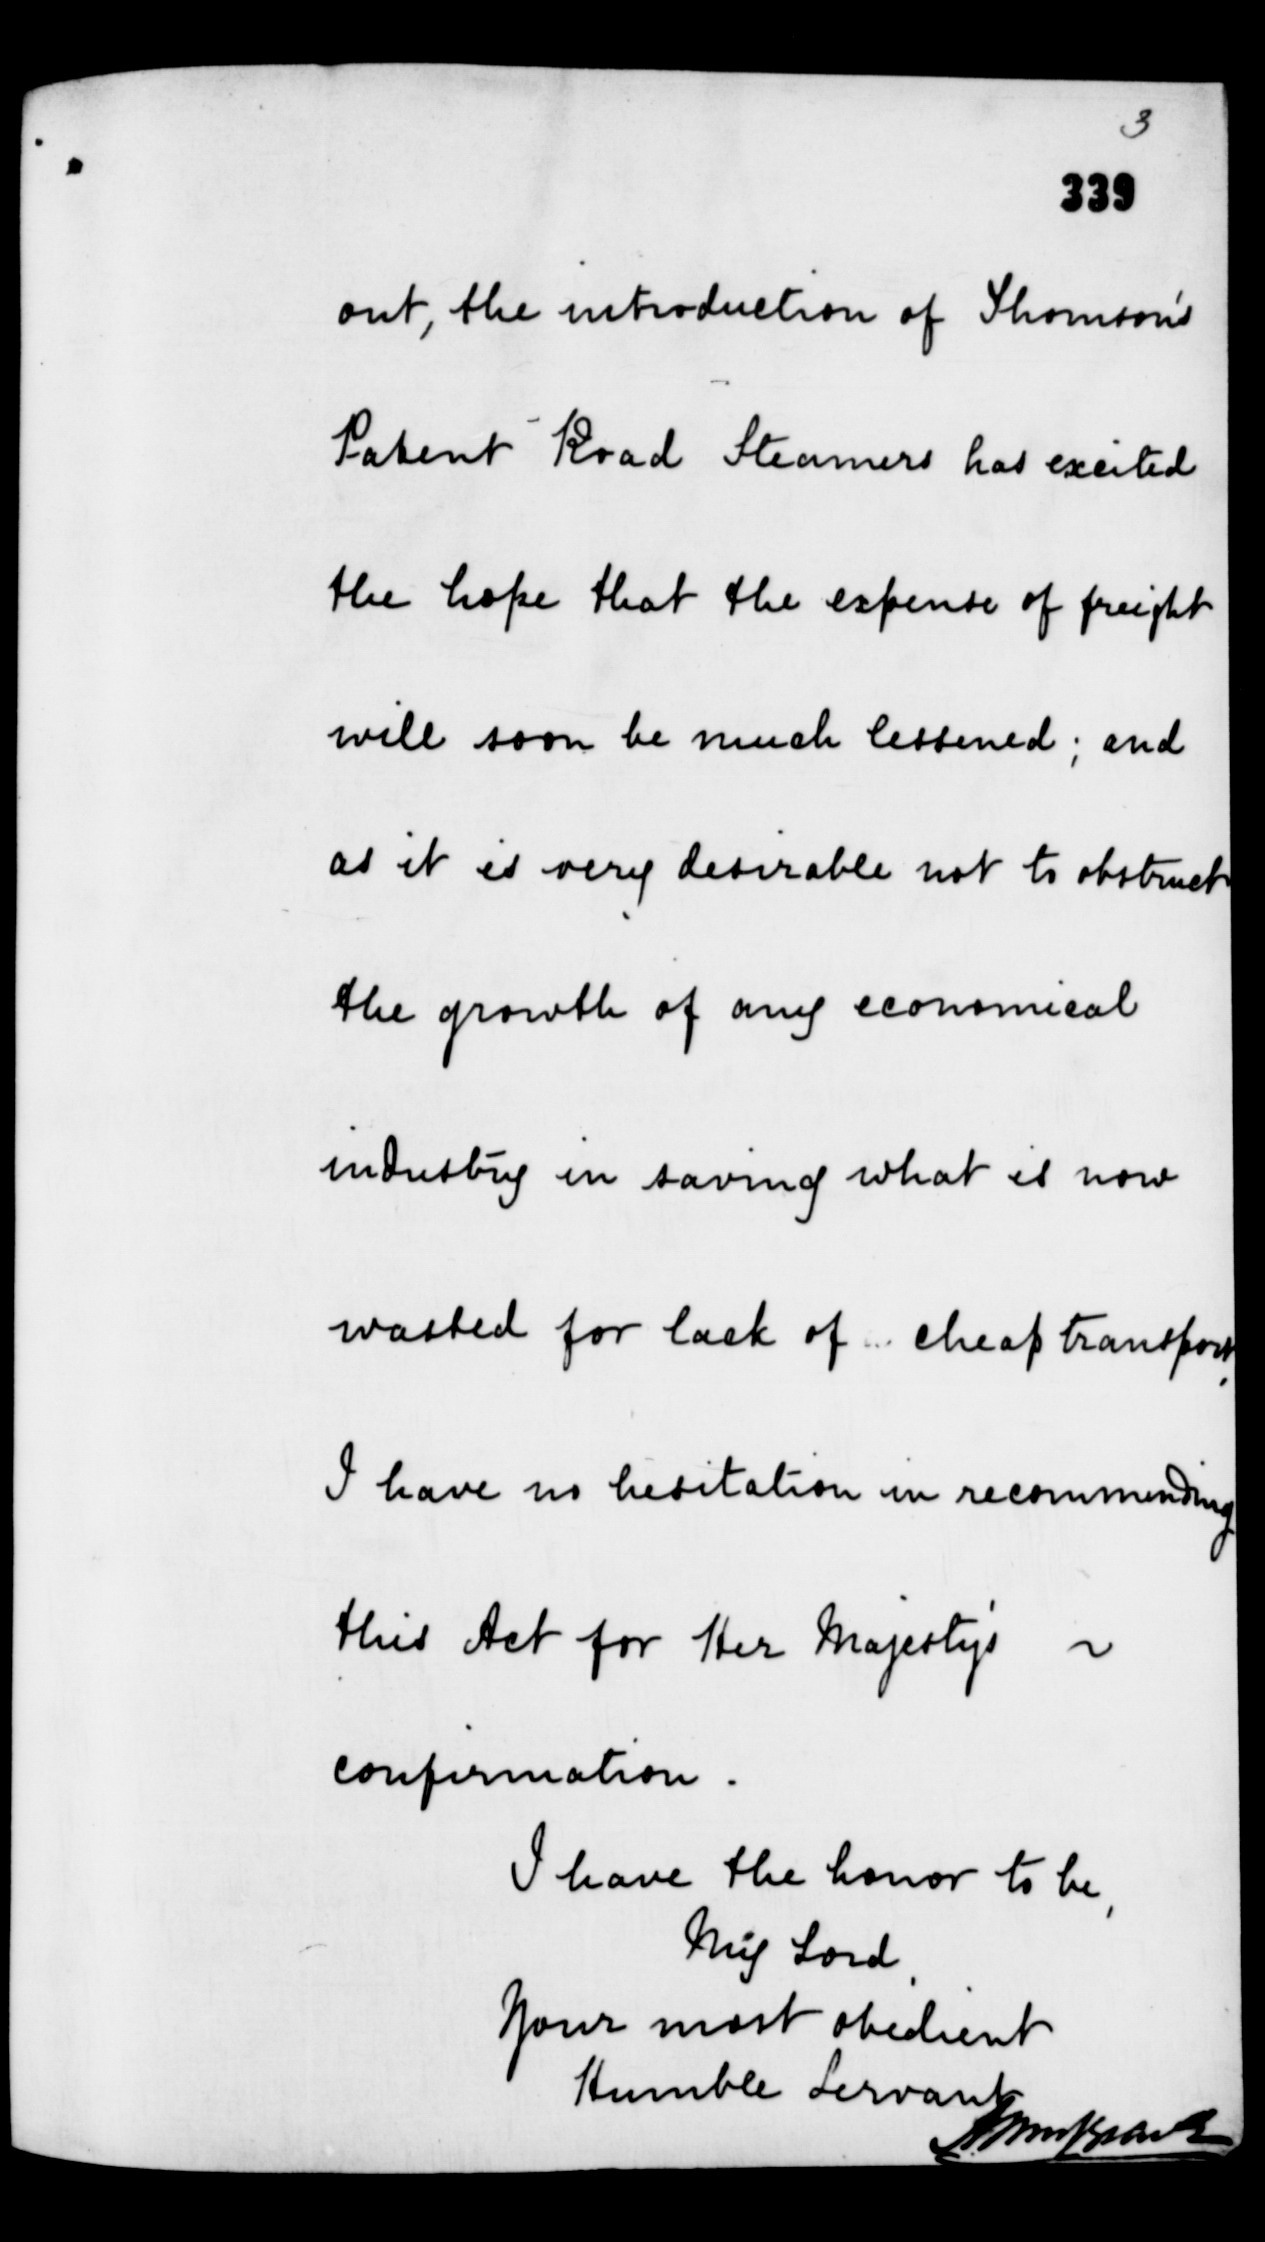 3
339
out, the introduction of Thomson's
Patent Road Steamers has excited
the hope that the expense of freight
will soon be much lessened; and
as it is very desirable not to obstruct
the growth of any economical
industry in saving what is now
wasted for lack of cheap transport,
I have no hesitation in recommending
this Act for Her Majesty's ~
confirmation.
I have the honor to be,
My Lord,
Your most obedient
Humble Servant